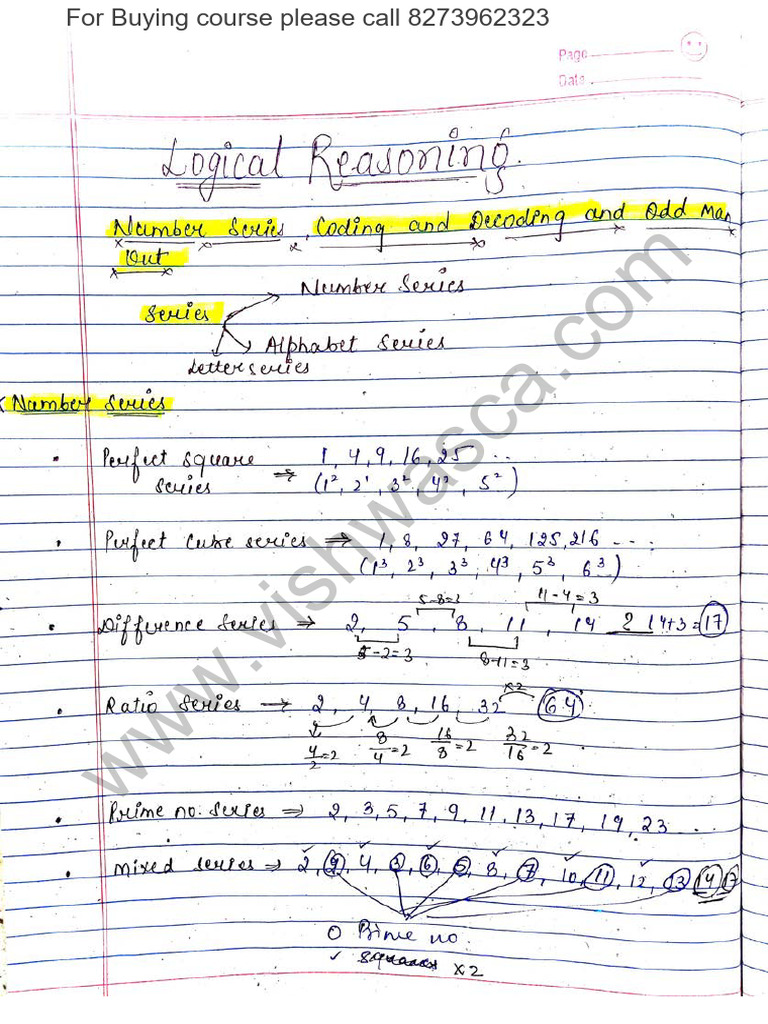 For Buying course please call 8273962323
Page
Date
Logical Reasoning.
Number Series, Coding and Decoding and Odd Man
Out
Series
Number Series
Alphabet Series
Letter series
Number Series
Perfect Square series ⇒ 1, 4, 9, 16, 25 ...
(1², 2¹, 3², 4², 5²)
Perfect Cube series ⇒ 1, 8, 27, 64, 125, 216 ....
(1³, 2³, 3³, 4³, 5³, 6³)
5-8=3 11-4=3
Difference Series ⇒ 2, 5, 8, 11, 14 ? 14+3=17
5-2=3 8-11=3
x2
Ratio Series → 2, 4, 8, 16, 32 64
4/2=2 8/4=2 16/8=2 32/16=2
Prime no. series ⇒ 2, 3, 5, 7, 9, 11, 13, 17, 19, 23 ...
Mixed series ⇒ 2, 2, 4, 3, 6, 5, 8, 7, 10, 11, 12, 13 14 17
O Prime no.
✓ x2
www.vishwasca.com